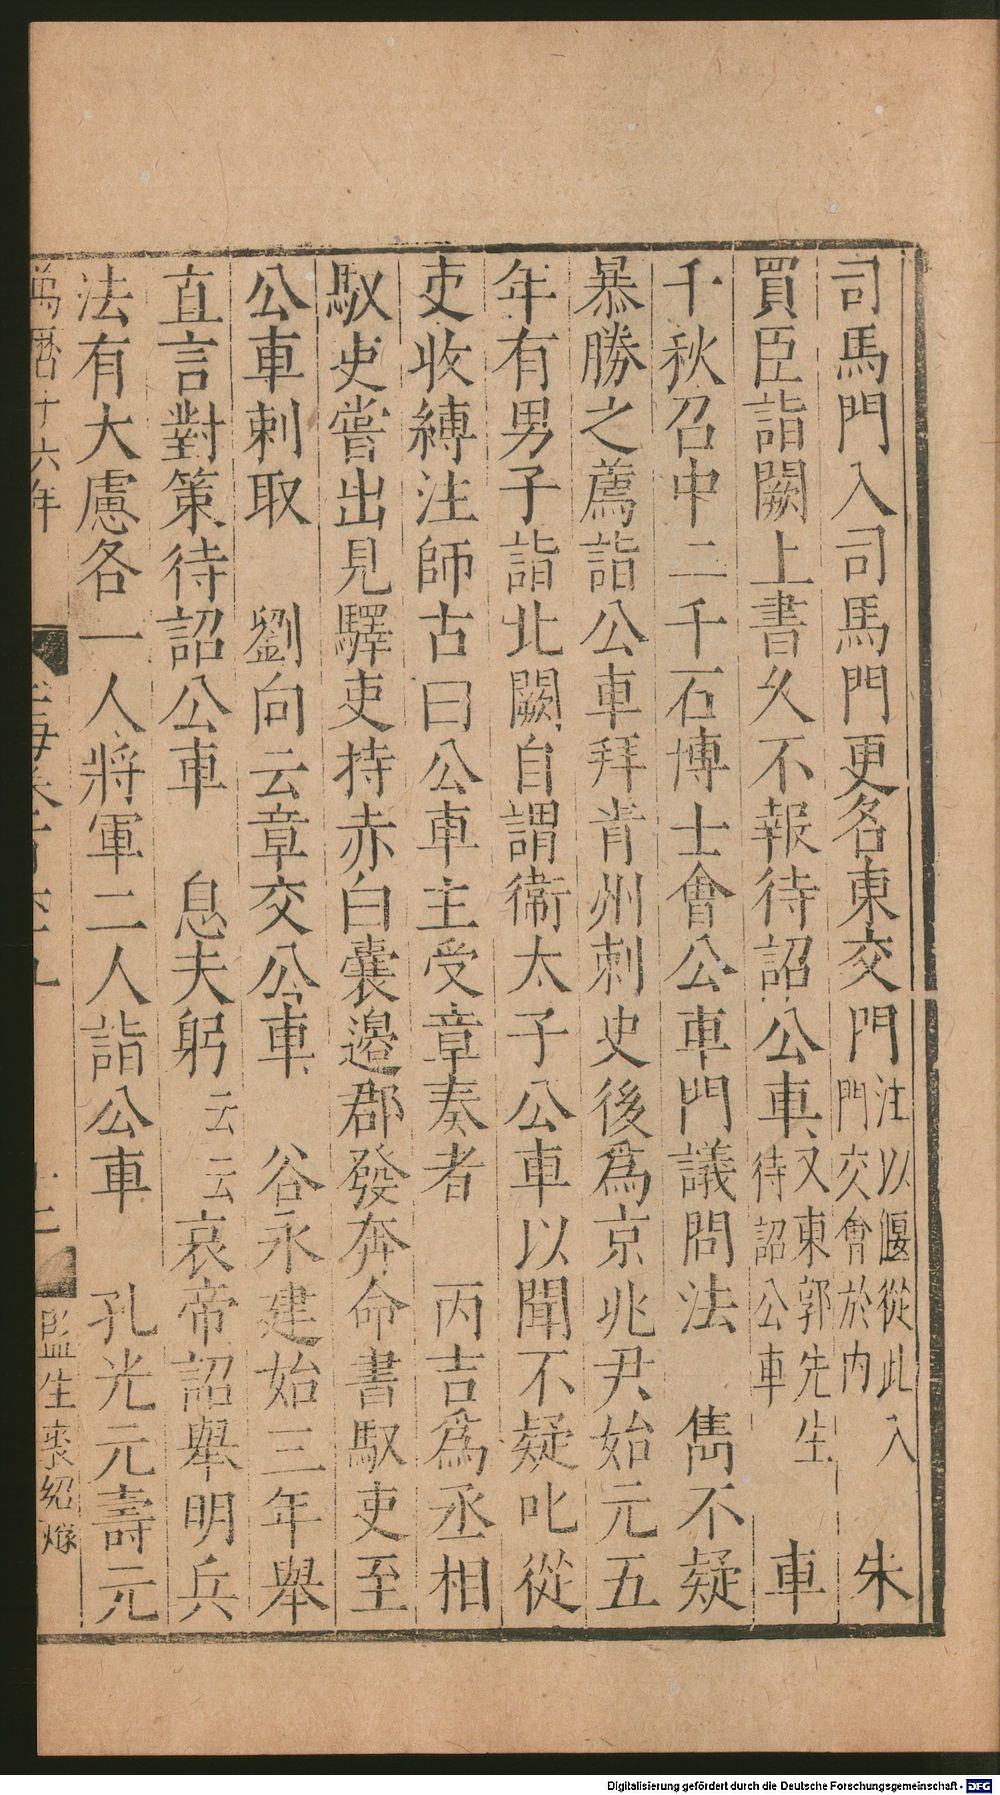 司馬門入司馬門更名東交門注以偃從此入門交會於内　朱
買臣詣闕上書久不報待詔公車又東郭先生待詔公車　車
千秋召中二千石博士會公車門議問法　雋不疑
暴勝之薦詣公車拜青州刺史後爲京兆尹始元五
年有男子詣北闕自謂衞太子公車以聞不疑叱從
吏收縛注師古曰公車主受章奏者　丙吉爲丞相
馭吏嘗出見驛吏持赤白囊邉郡發奔命書馭吏至
公車刺取　劉向云章交公車　谷永建始三年舉
直言對策待詔公車　息夫躬云云哀帝詔舉明兵
法有大慮各一人將軍二人詣公車　孔光元壽元
萬曆十六年
監生裘紹
Digitalisierung gefördert durch die Deutsche Forschungsgemeinschaft - DFG